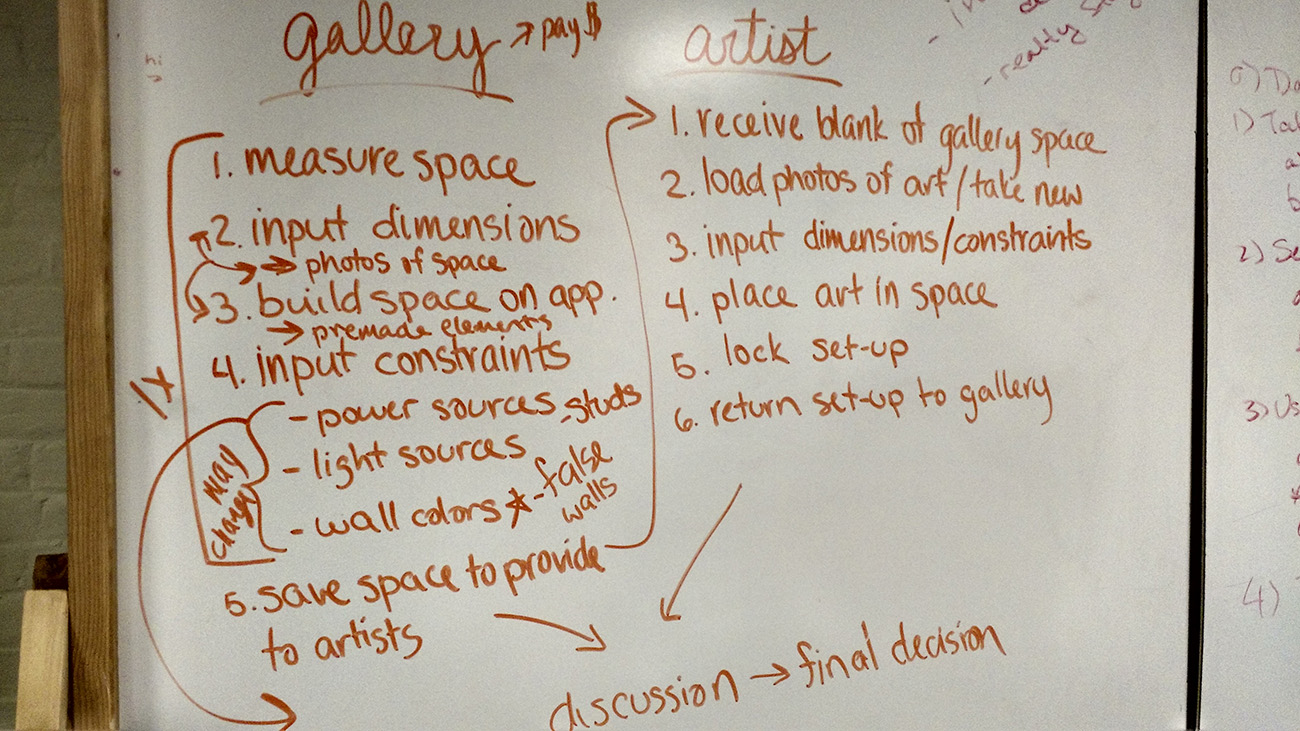 gallery → pay $
1. measure space
2. input dimensions
→ photos of space
3. build space on app.
→ premade elements
4. input constraints
1x
- power sources - studs
- light sources
- wall colors * - false
walls
may
change
5. save space to provide
to artists
artist
1. receive blank of gallery space
2. load photos of art / take new
3. input dimensions/constraints
4. place art in space
5. lock set-up
6. return set-up to gallery
discussion → final decision
hi
- really
1)
2) Se
3) Us
4)